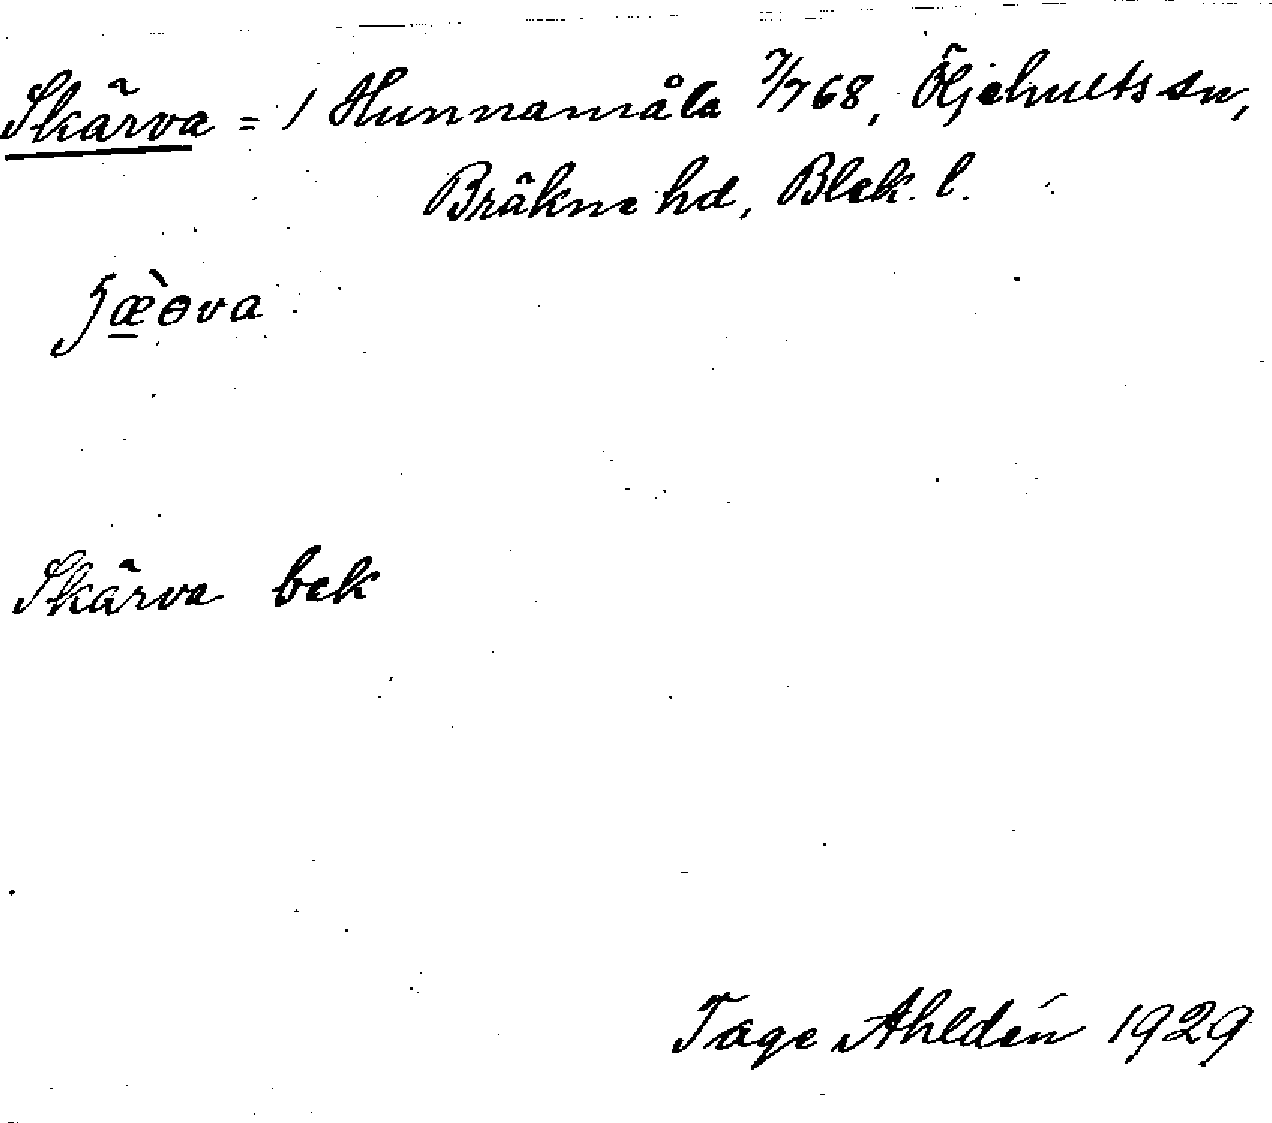 Skärva = 1 Hunnamåla 7/768, Öljehults sn,
Bräkne hd, Blek. l.
ʃæ̠̀ɵva
Skärva bek
Tage Ahldén 1929